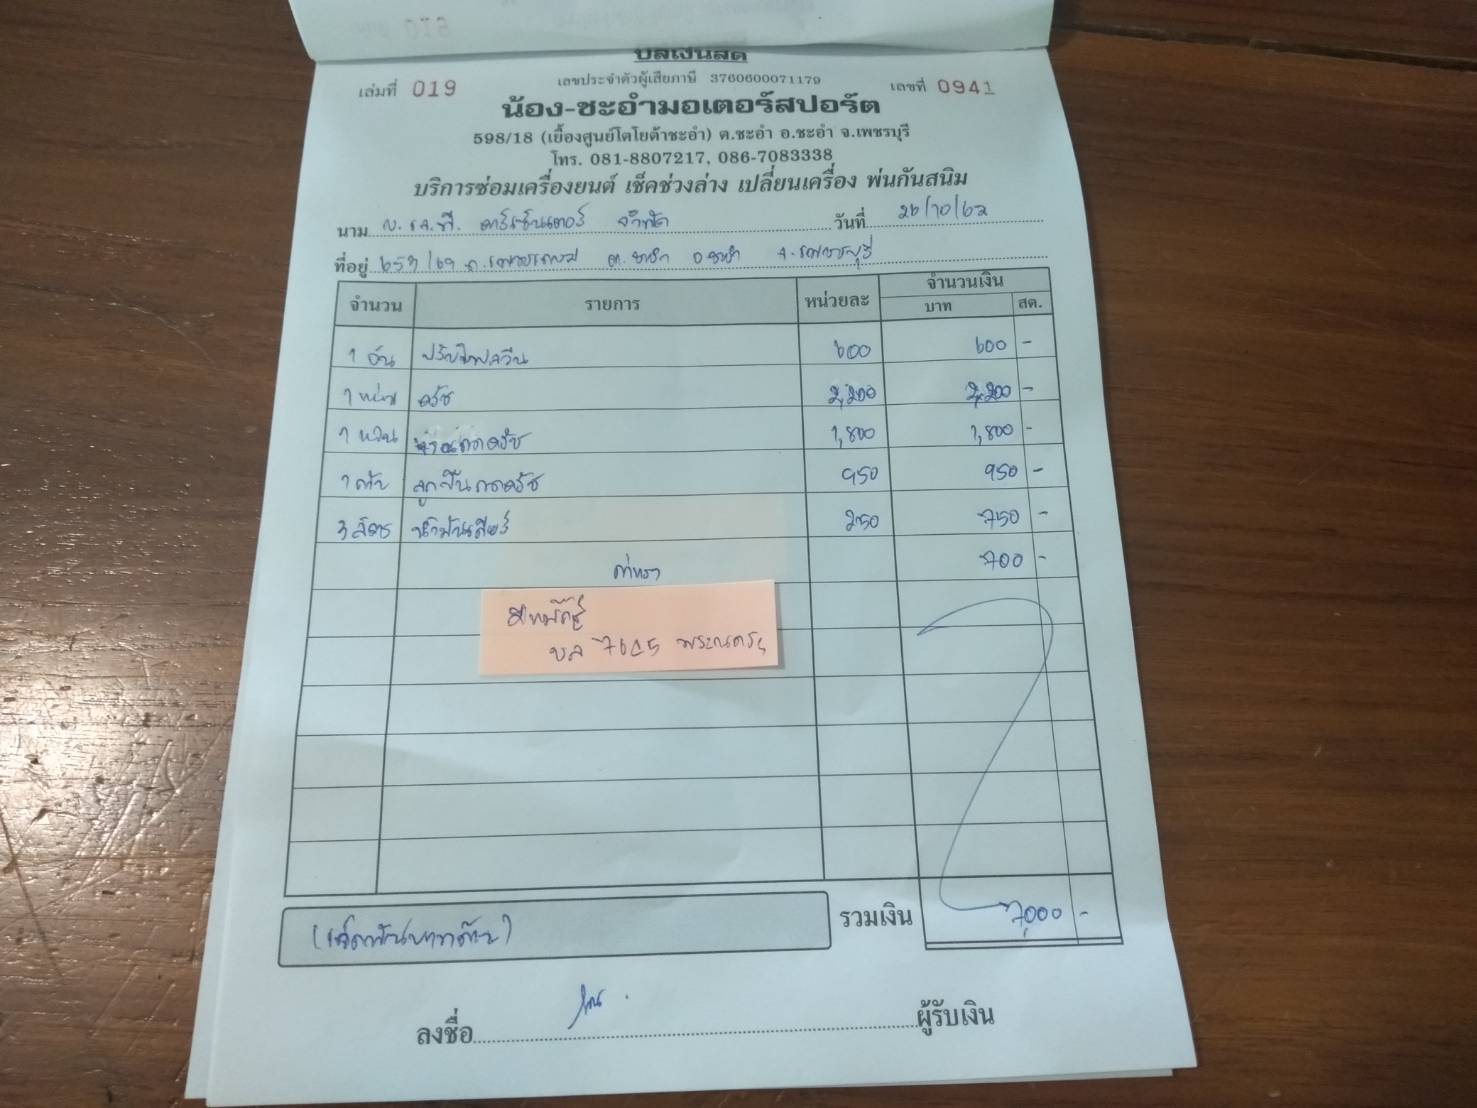 บิลเงินสด
เล่มที่ 019 เลขประจำตัวผู้เสียภาษี 3760600071179 เลขที่ 0941
น้อง-ชะอำมอเตอร์สปอร์ต
598/18 (เยื้องศูนย์โตโยต้าชะอำ) ต.ชะอำ อ.ชะอำ จ.เพชรบุรี
โทร. 081-8807217, 086-7083338
บริการซ่อมเครื่องยนต์ เช็คช่วงล่าง เปลี่ยนเครื่อง พ่นกันสนิม
นาม บ. เจ.พี. คาร์เซ็นเตอร์ จำกัด วันที่ 26/10/62
ที่อยู่ ถ.เพชรเกษม ต.ชะอำ อ.ชะอำ จ.เพชรบุรี
จำนวน รายการ หน่วยละ จำนวนเงิน
บาท สต.
1 อัน 600 600 -
1 คลัช 2,200 2,200 -
1 คลัช 1,800 1,800 -
1 ตลับ ลูกปืนกดคลัช 950 950 -
3 ลิตร น้ำมันเกียร์ 250 750 -
ค่าแรง 700 -
พระนคร
รวมเงิน 7,000 -
(เจ็ดพันบาทถ้วน)
ลงชื่อ ผู้รับเงิน